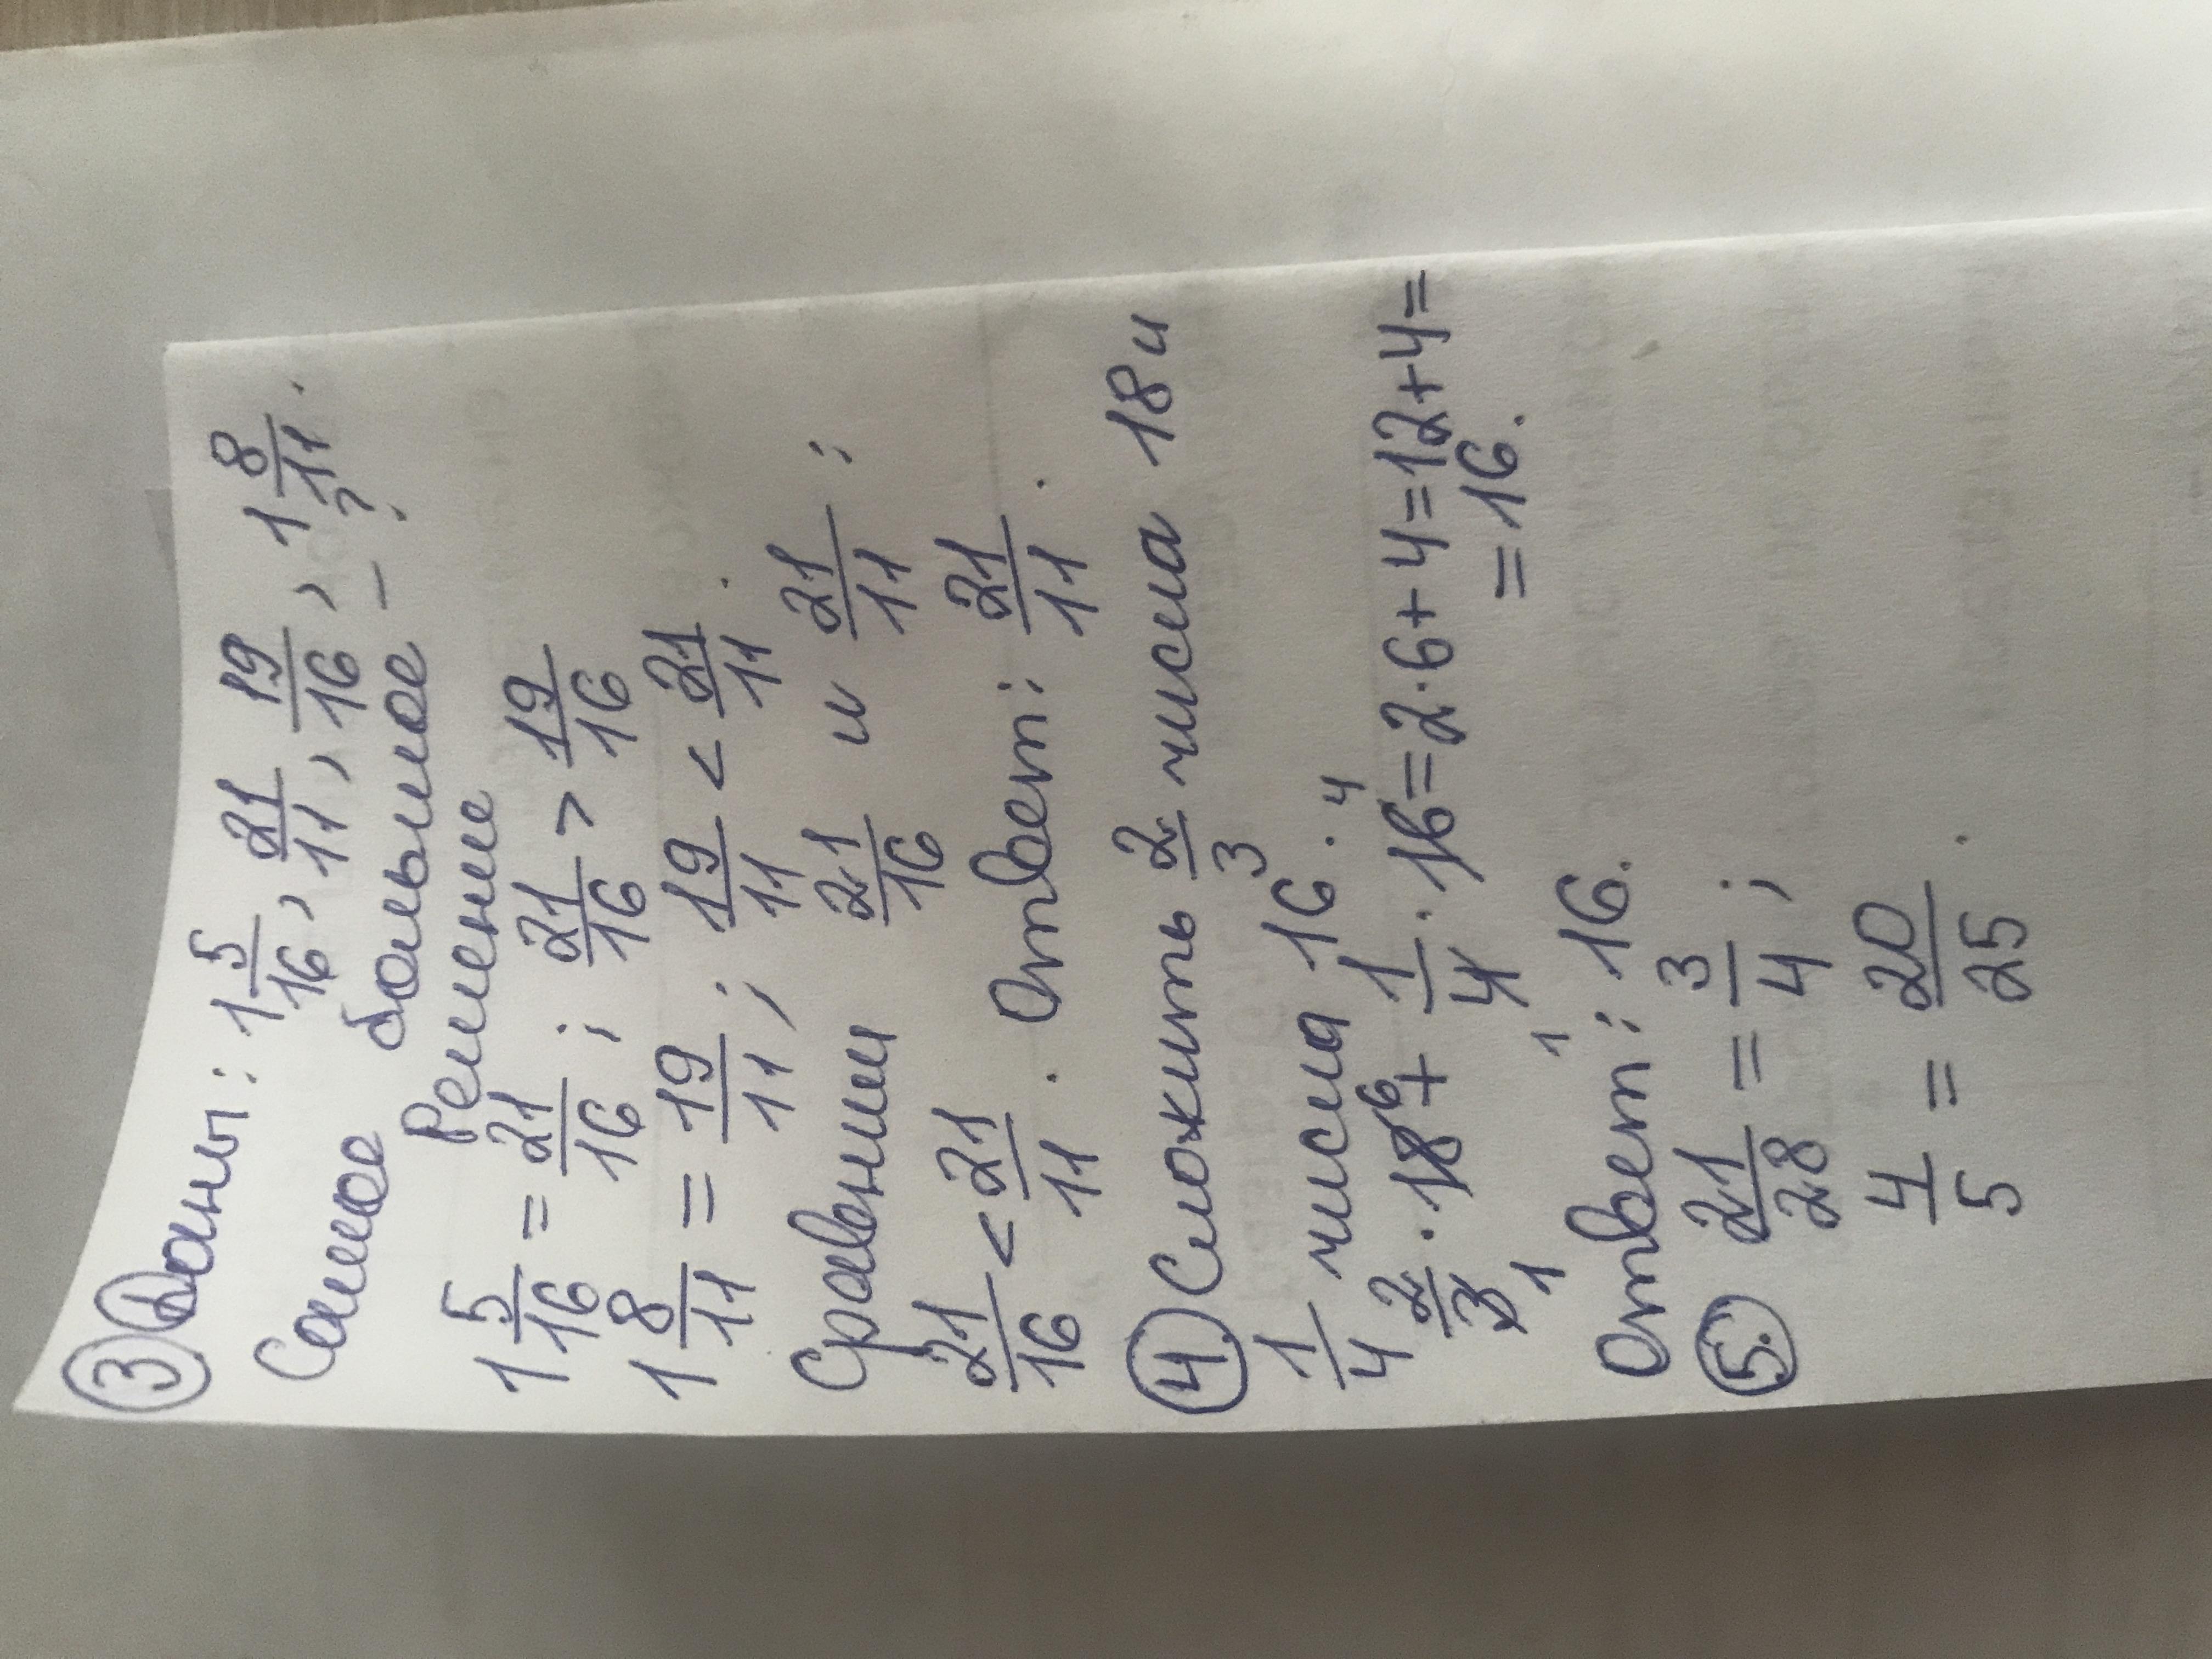 ③ Даны: 1 5/16, 21/11, 19/16, 1 8/11.
Самое большое — ?
Решение
1 5/16 = 21/16; 21/16 > 19/16
1 8/11 = 19/11; 19/11 < 21/11.
Сравним 21/16 и 21/11;
21/16 < 21/11. Ответ: 21/11.
④. Сложить 2/3 числа 18 и
1/4 числа 16.
2/3 · 18 + 1/4 · 16 = 2·6+4=12+4=
1 6 1 4
=16.
Ответ: 16.
⑤. 21/28 = 3/4;
4/5 = 20/25.